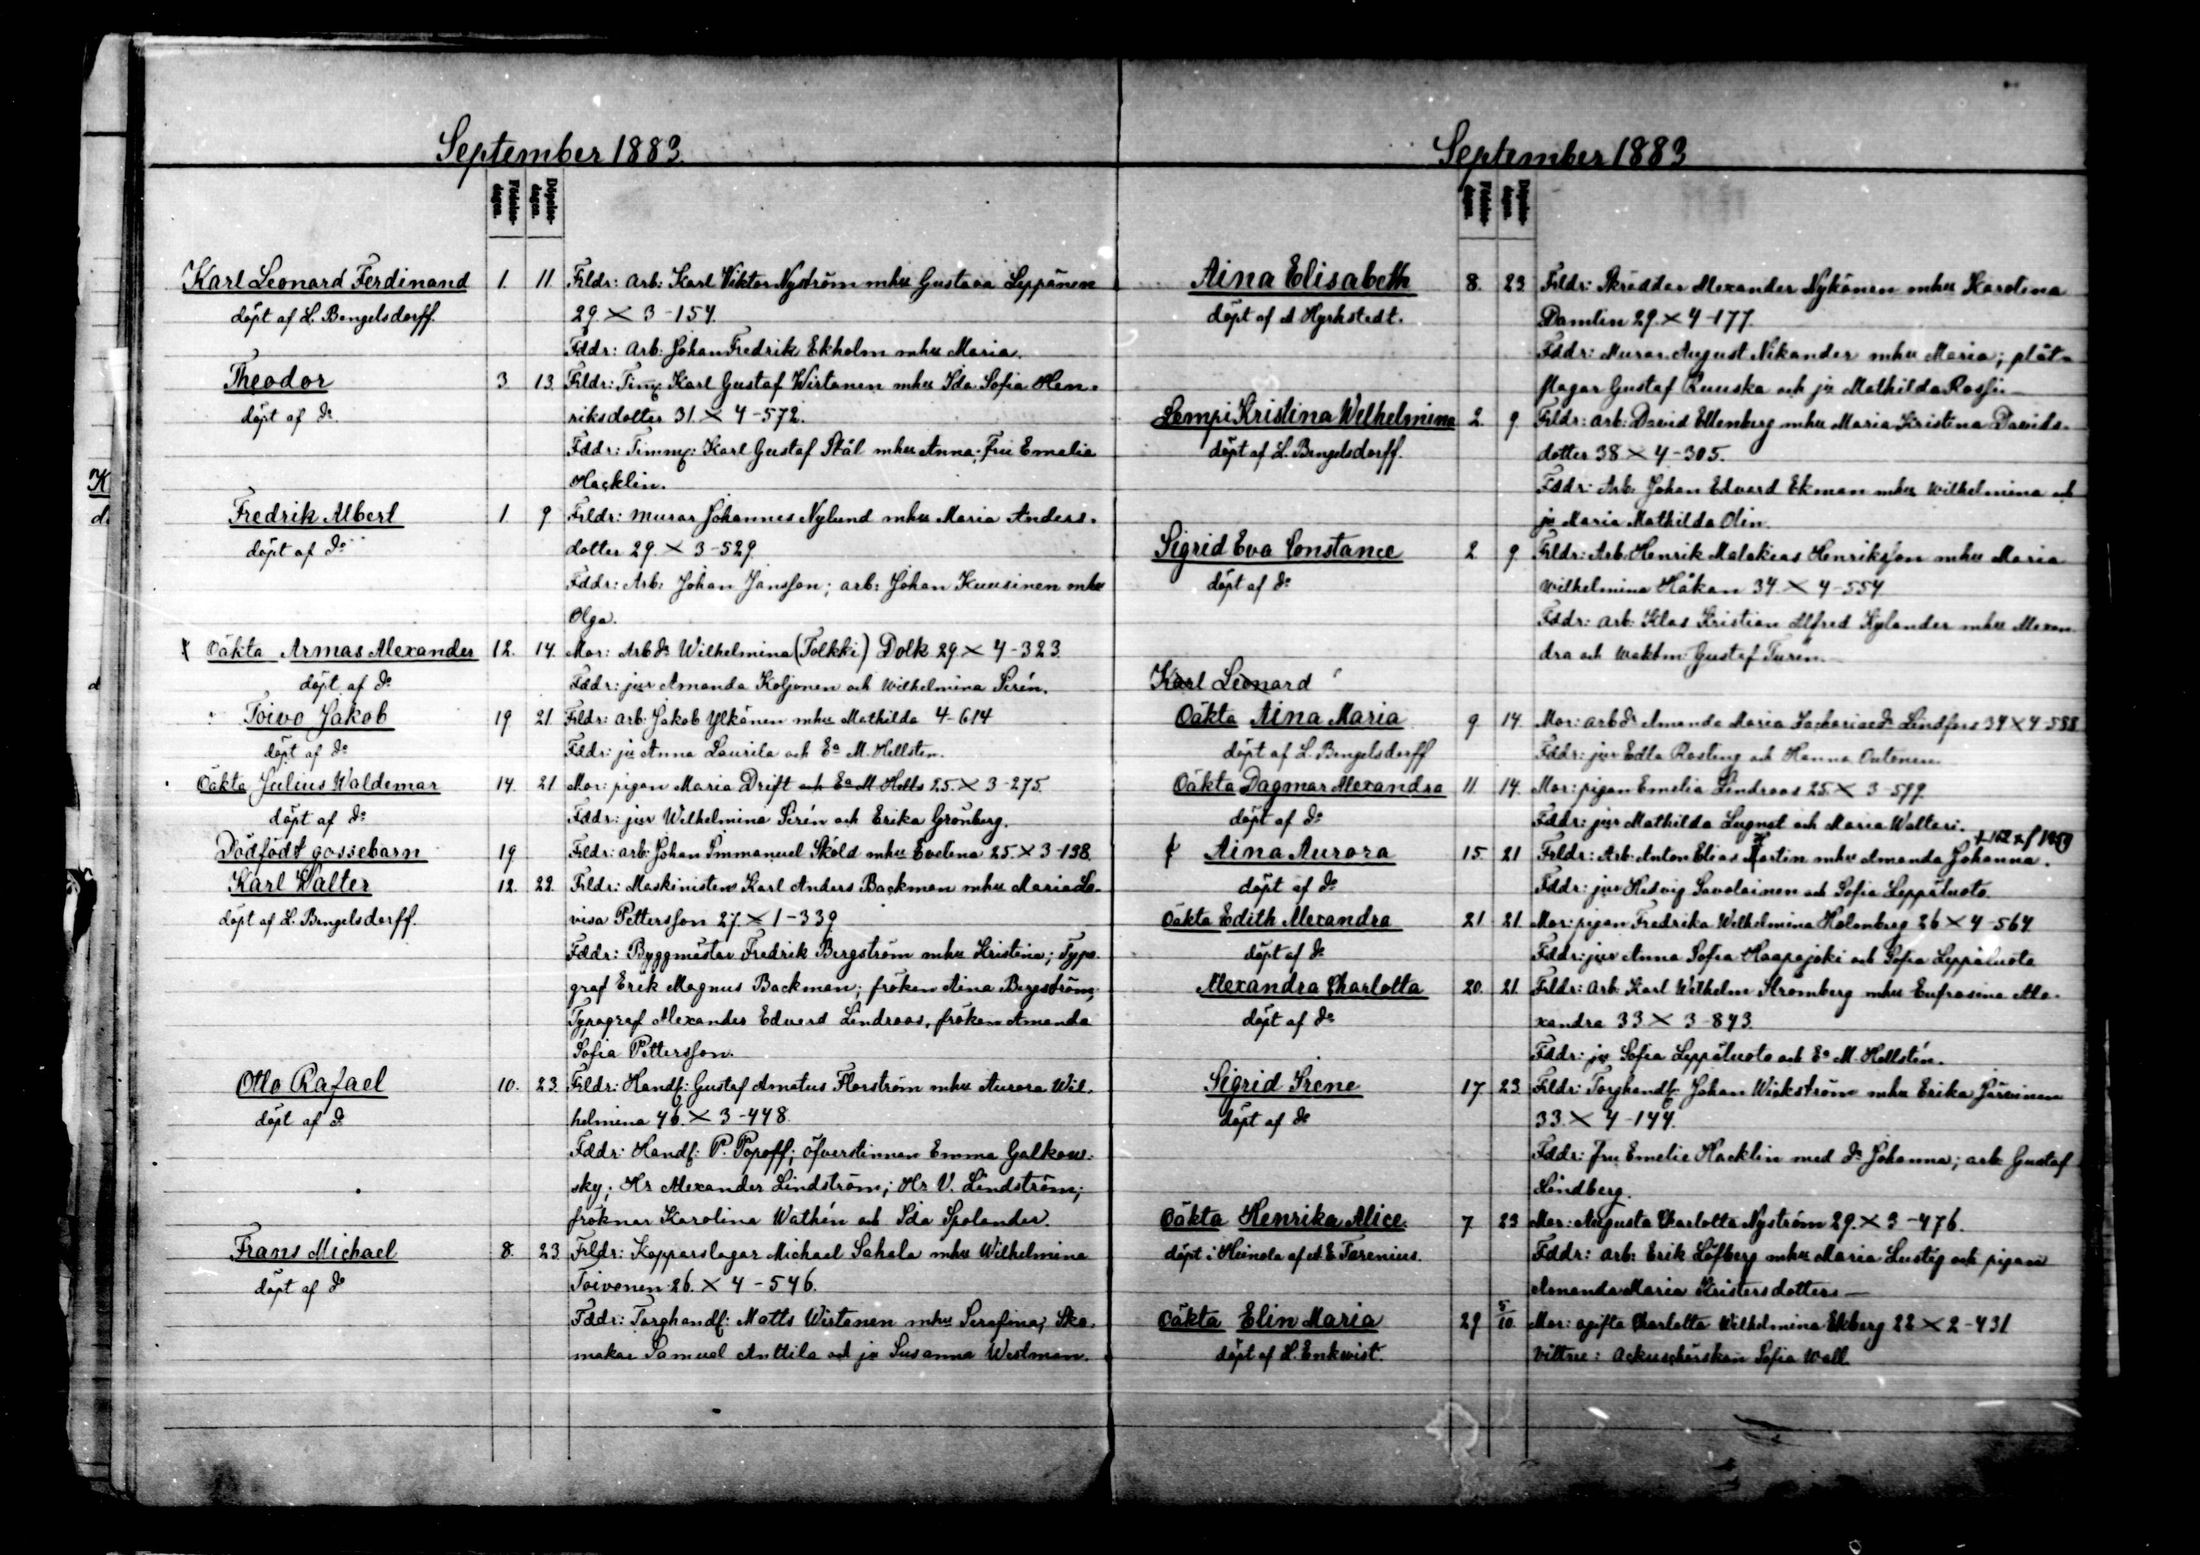 September 1883
Födelse-
dagen.
Döpelse-
dagen.
Karl Leonard Ferdinand 1. 11 Frldr: Arb: Karl Viktor Nyström mhu Gustava Leppänen
döpt af L. Bengelsdorff. 29. × 3-154.
Fddr: Arb: Johan Fredrik Ekholm mhu Maria.
Theodor 3 13. Frldr: Timm: Karl Gustaf Wirtanen mhu Ida Sofia Hen-
döpt af do riksdotter 31. × 4-572.
Fddr: Timmr: Karl Gustaf Stål mhu Anna; Fru Emelia
Hacklin.
Fredrik Albert 1. 9 Frldr: murar Johannes Nylund mhu Maria Anders-
döpt af do dotter 29. × 3-529.
Fddr: Arb: Johan Jansson; arb: Johan Kuusinen mhu
Olga.
Oäkta Armas Alexander 12. 14. Mor: Arbdr Wilhelmina (Tolkki) Dolk 29 × 4-323.
döpt af do Fddr: jur Amanda Koljonen och Wilhelmina Serén.
Toivo Jakob 19 21. Frldr: arb: Jakob Ylkänen mhu Mathilda 4-614
döpt af do Fddr: ju Anna Laurila och Ea M. Hellsten.
Oäkta Julius Waldemar 14. 21 Mor: pigan Maria Drift och Ea M Hells 25. × 3-275.
döpt af do Fddr: jur Wilhelmina Serén och Erika Grönberg.
Dödfödt gossebarn 19 Frldr: arb: Johan Immanuel Sköld mhu Evelina 25 × 3-198.
Karl Walter 12. 22. Frldr: Maskinisten Karl Anders Backman mhu Maria Lo-
döpt af L. Bengelsdorff. visa Pettersson 27. × 1-339
Fddr: Byggmästar Fredrik Bergström mhu Kristina; Typo-
graf Erik Magnus Backman; fröken Aina Bergström;
Typograf Alexander Edvard Lindroos, fröken Amanda
Sofia Pettersson.
Otto Rafael 10. 23. Frldr: Handl: Gustaf Amatus Florström mhu Aurora Wil-
döpt af do helmina 46. × 3-448.
Fddr: Handl: P. Popoff; öfverstinnan Emma Galkow-
sky; Hr Alexander Lindström; Hr V. Lindström;
fröknar Karolina Wathén och Ida Spolander.
Frans Michael 8. 23 Frldr: Kopparslagar Michael Sahala mhu Wilhelmina
döpt af do Toivonen 26. × 4-546.
Fddr: Torghandl: Matts Wirtanen mhu Serafina; Sko-
makar Samuel Anttila och ju Susanna Westman.
September 1883
Födelse-
dagen.
Döpelse-
dagen.
Aina Elisabeth 8. 23. Frldr: Skräddar Alexander Nykänen mhu Karolina
döpt af A Hyrkstedt. Damlin 29. × 4-177.
Fddr: Murar August Nikander mhu Maria; plåt-
slagar Gustaf Ruuska och ju Mathilda Rossi.
Lempi Kristina Wilhelmina 2. 9 Frldr: Arb: David Ellenberg mhu Maria Kristina Davids-
döpt af L. Bengelsdorff. dotter 38 × 4-305.
Fddr: Arb: Johan Edvard Ekman mhu Wilhelmina och
ju Maria Mathilda Olin.
Sigrid Eva Constance 2 9. Frldr: Arb: Henrik Malakias Henriksson mhu Maria
döpt af do Wilhelmina Håkan 34 × 4-554
Fddr: arb: Klas Kristian Alfred Kylander mhu Alexan-
dra och waktm: Gustaf Turén.
Karl Leonard
Oäkta Aina Maria 9. 14. Mor: arbdr Amanda Maria Sachariaedr Lindfors 34 × 4-588
döpt af L. Bengelsdorff Fddr: jur Edla Rosting och Hanna Outonen.
Oäkta Dagmar Alexandra 11. 14. Mor: pigan Emelia Lindroos 25. × 3-599.
döpt af do Fddr: jur Mathilda Lugnet och Maria Waltari.
Aina Aurora 15. 21 Frldr: Arb: Anton Elias Martin mhu Amanda Johanna.
döpt af do Fddr: jur Hedvig Savolainen och Sofia Leppäluoto.
Oäkta Edith Alexandra 21 21. Mor: pigan Fredrika Wilhelmina Holmberg 26 × 4-564
döpt af do Fddr: jur Anna Sofia Haapajoki och Sofia Leppäluoto
Alexandra Charlotta 20. 21. Frldr: Arb: Karl Wilhelm Stromberg mhu Eufrosina Ale-
döpt af do xandra 33 × 3-843.
Fddr: ju Sofia Leppäluoto och Ea M. Hellstén.
Sigrid Irene 17. 23 Frldr: Torghandl: Johan Wickström mhu Erika Järvinen
döpt af do 33. × 4-144.
Fddr: fru Emelie Hacklin med dr Johanna; arb: Gustaf
Lindberg.
Oäkta Henrika Alice. 7 23 Mor: Augusta Charlotta Nyström 29. × 3-476.
döpt i Heinola af A. E. Tarenius. Fddr: arb: Erik Löfberg mhu Maria Lustig och pigan
Amanda Maria Kristersdotter.
Oäkta Elin Maria 29 5/10. Mor: ogifta Charlotta Wilhelmina Ekberg 22 × 2-431
döpt af H. Enkvist. Vittne: Ackuschörskan Sofia Wall.